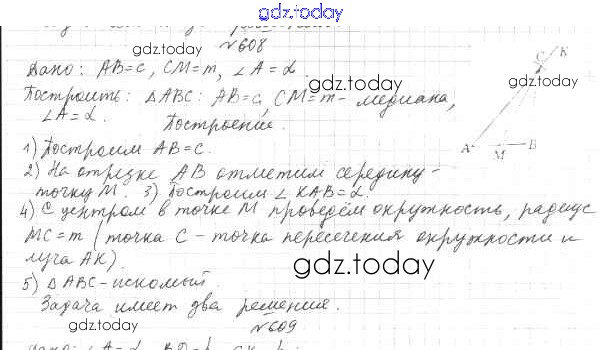 gdz.today
№608
gdz.today
Дано: AB=c, CM=m, ∠A=α.
gdz.today
Построить: △ABC: AB=c, CM=m - медиана,
∠A=α.
Построение.
1) Построим AB=c.
2) На отрезке AB отметим середину -
точку M. 3) Построим ∠KAB=α.
4) С центром в точке M проведём окружность, радиус
MC=m (точка C - точка пересечения окружности и
луча AK).
gdz.today
5) △ABC - искомый
Задача имеет два решения.
gdz.today
№609
gdz.today
C
K
A
M
B